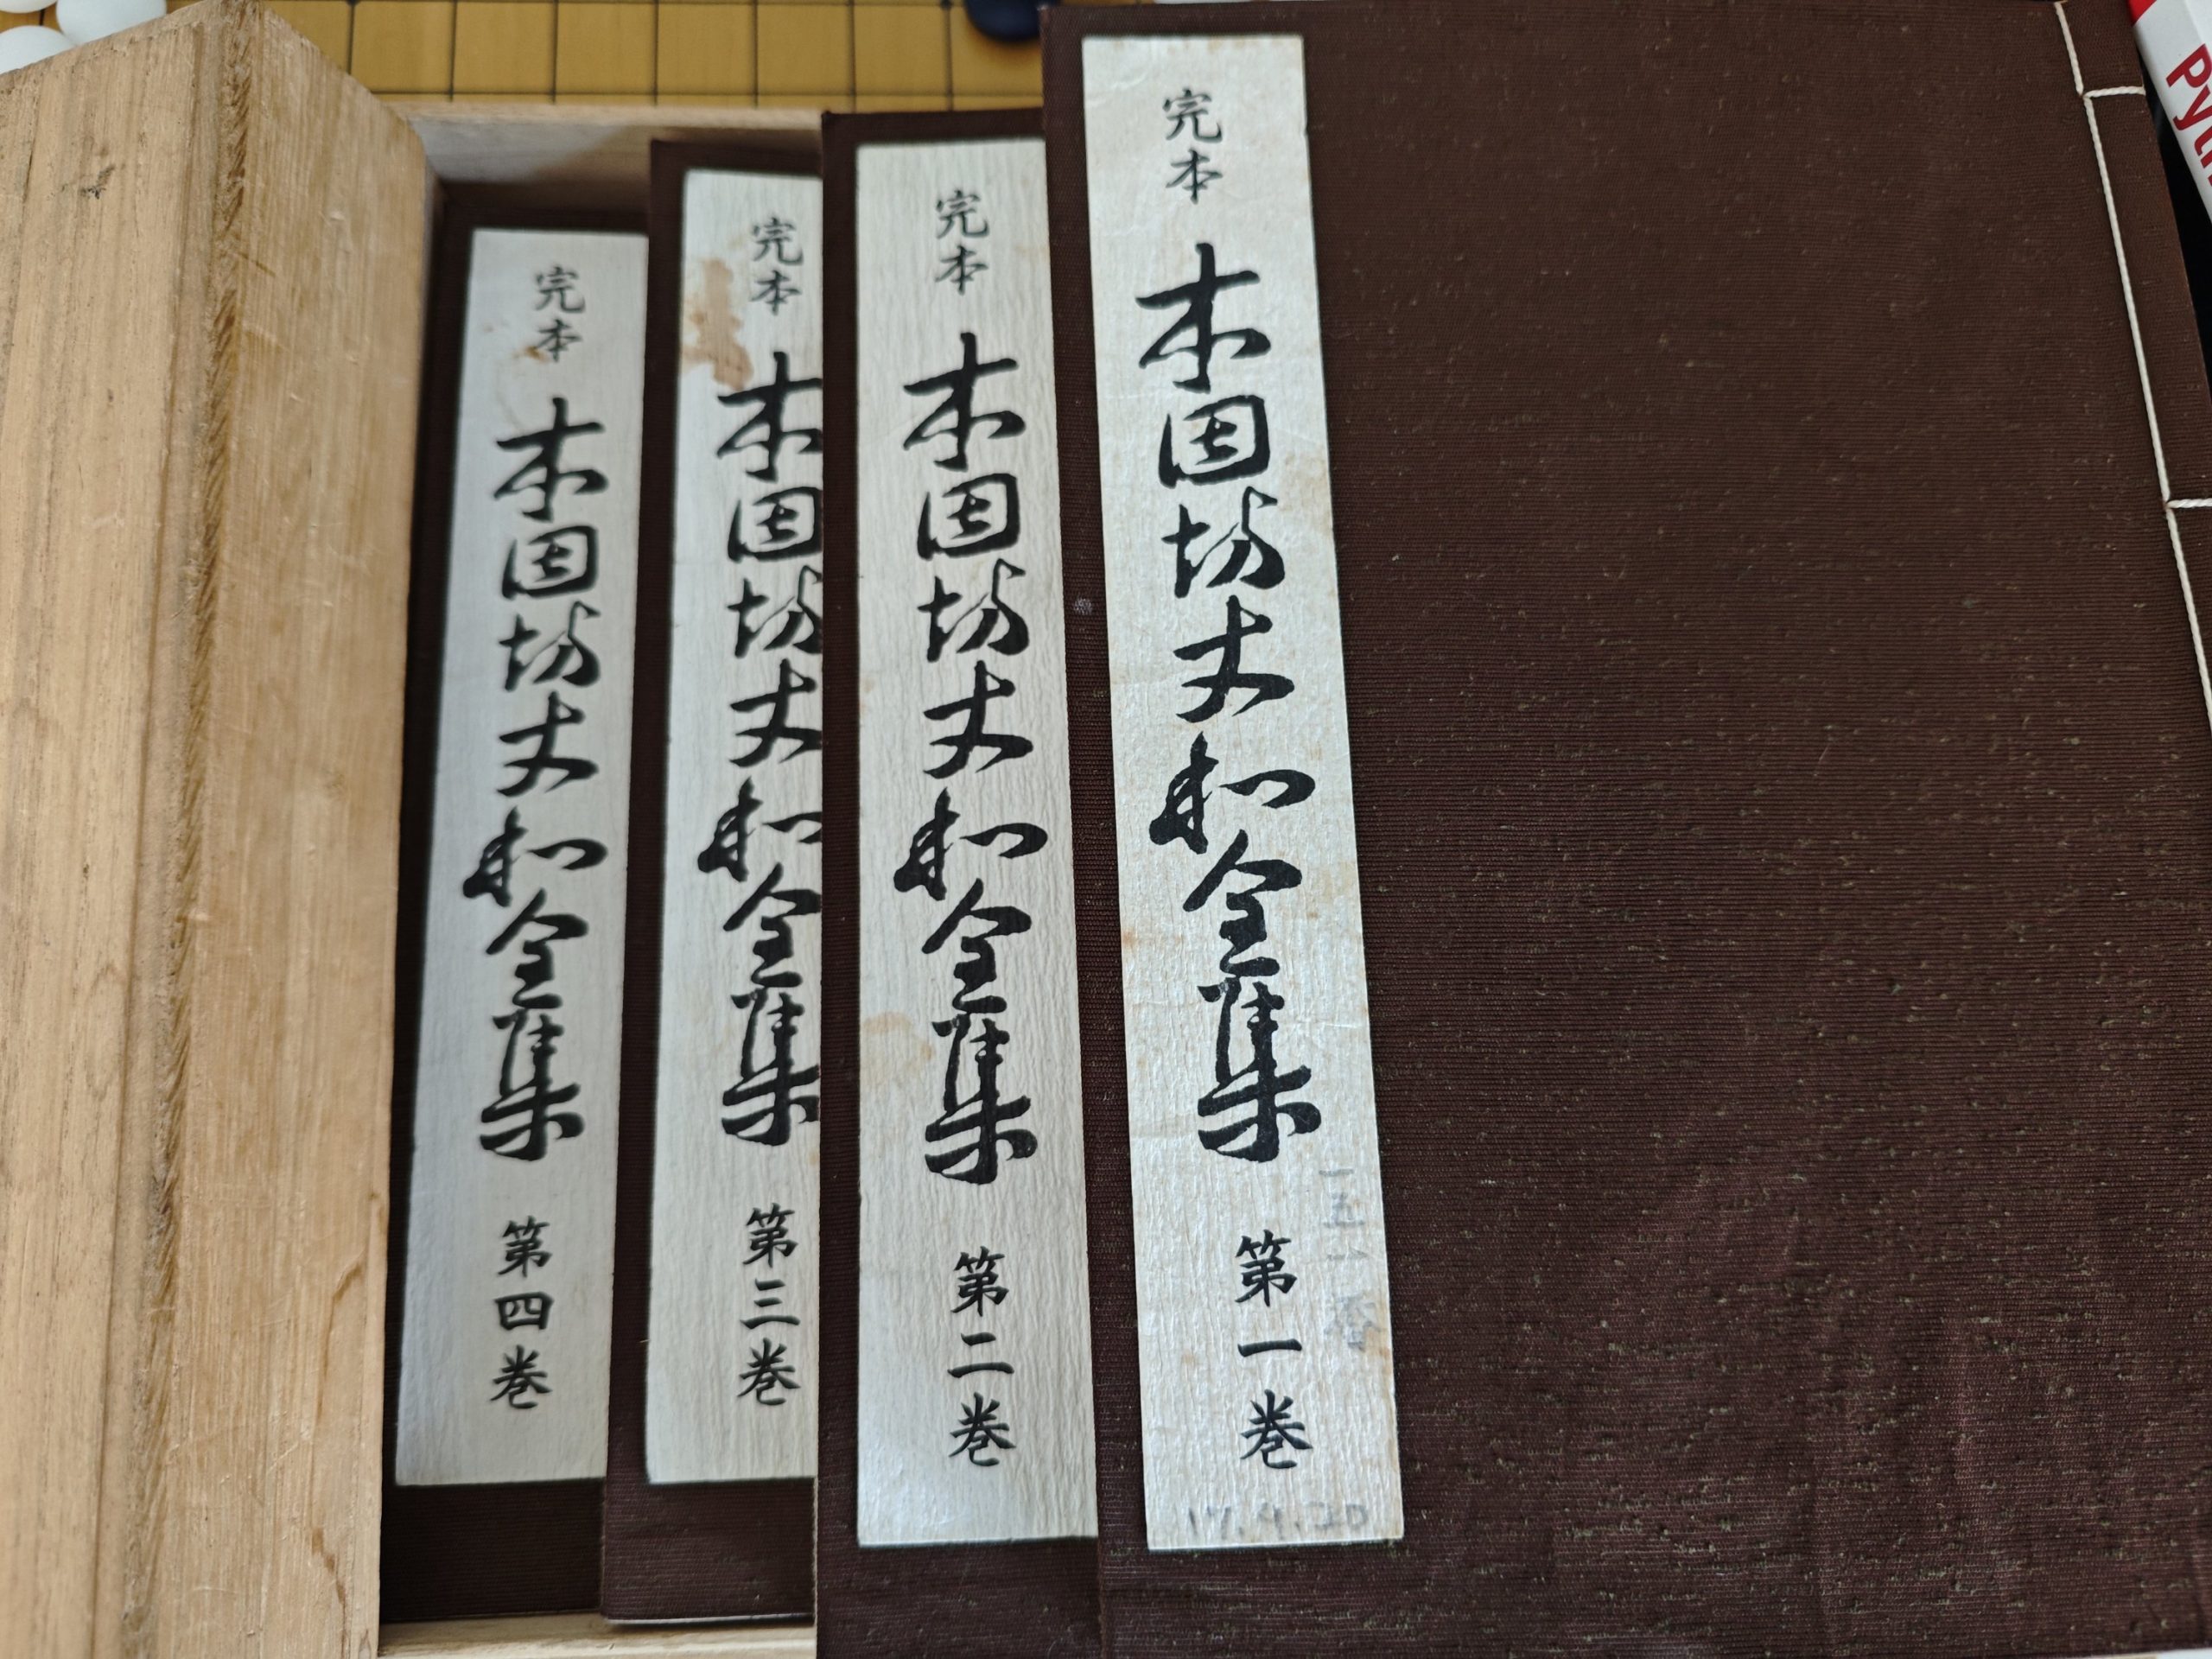 完本 本因坊丈和全集 第一巻
17.9.20
完本 本因坊丈和全集 第二巻
完本 本因坊丈和全集 第三巻
完本 本因坊丈和全集 第四巻